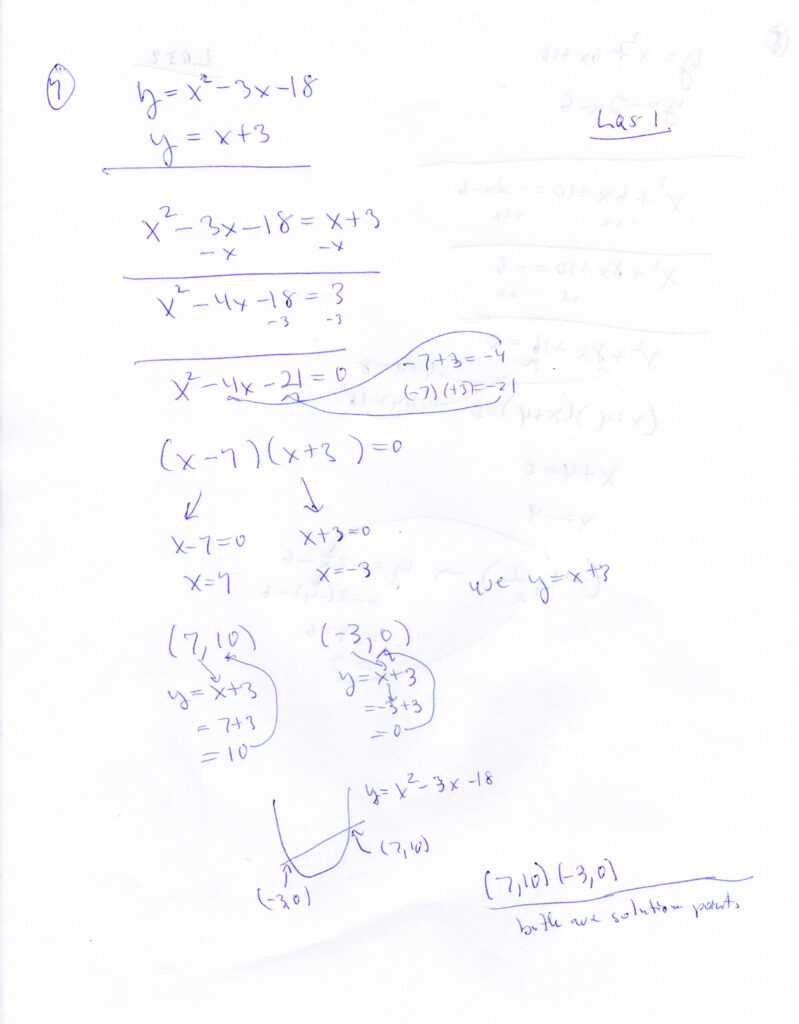 7
y = x² - 3x - 18
y = x + 3
Las 1.
x² - 3x - 18 = x + 3
- x - x
x² - 4x - 18 = 3
- 3 - 3
x² - 4x - 21 = 0
- 7 + 3 = - 4
(-7) (+3) = -21
(x - 7) (x + 3) = 0
x - 7 = 0 x + 3 = 0
x = 7 x = -3
use y = x + 3
(7, 10) (-3, 0)
y = x + 3 y = x + 3
= 7 + 3 = -3 + 3
= 10 = 0
y = x² - 3x - 18
(7, 10)
(-3, 0)
(7, 10) (-3, 0)
both are solution points